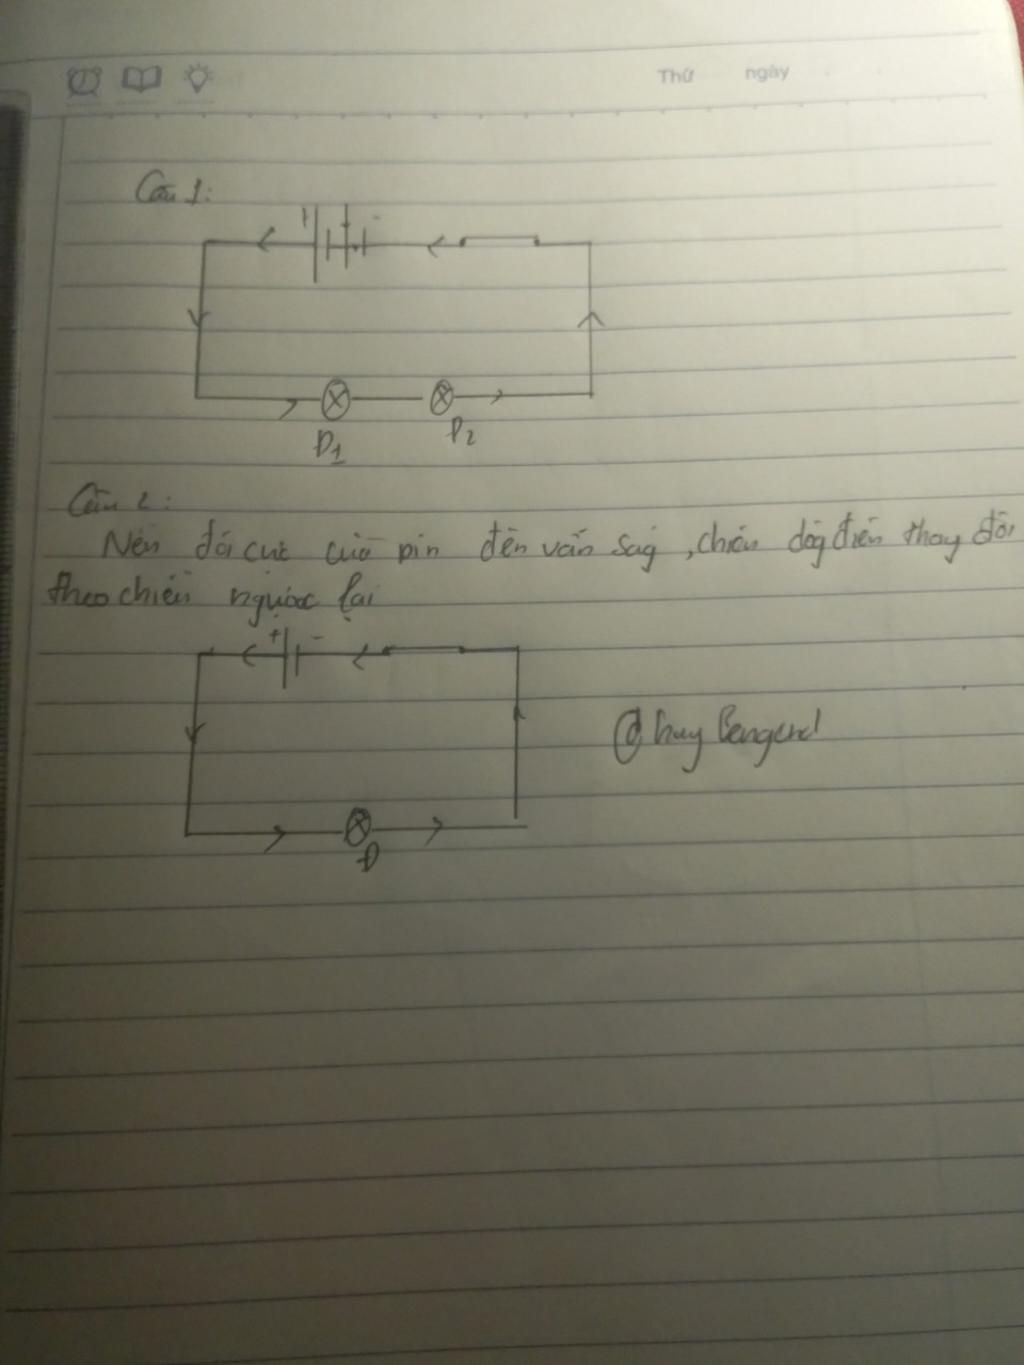 Thứ ngày
Câu 1:
+ -
Đ1 Đ2
Câu 2:
Nếu đổi cực của pin đèn vẫn ság, chiều dòg điện thay đổi
theo chiều ngược lại
+ -
Đ
huy